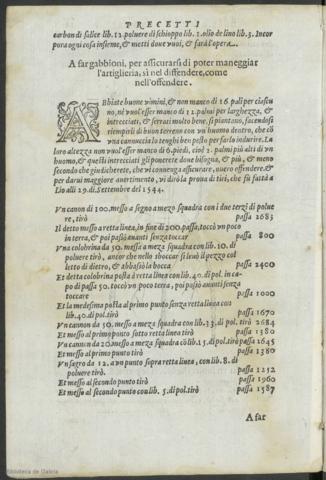 PRECETTI
carbon di salice lib. 12. poluere di schioppo lib. 1. olio de lino lib. 3. Incor
pora ogni cosa insieme, & metti doue vuoi, & farà l'opera.
A far gabbioni, per assicurarsi di poter maneggiar
l'artiglieria, sì nel diffendere, come
nell'offendere.
ABbiate buone vimini, & non manco di 16 pali per ciascu
no, nè vuol'esser manco di 12. palmi per larghezza, &
intrecciati, & serrati molto bene. si piantano, facendosi
riempirli di buon terreno con vn huomo dentro, che cō
vna cannuccia lo tenghi ben pesto per farlo indurire. La
loro altezza non vuol'esser manco di 6. piedi, cioè 2. palmi più alti di vn
huomo, & questi intrecciati gli ponerete doue bisogna, & più, & meno
secondo che giudicherete, che vi conuenga assicurare, ouero offendere, &
per darui maggiore auertimento, vi dirò la proua di tiri, che fù fatta a
Lio alli 29. di Settembre del 1544.
Vn canon di 100. messo a segno a mezo squadra con i due terzi di polue
re, tirò passa 2685
Il detto messo a retta linea, in fine di 200. passa, toccò vn poco
in terra, & poi passiò auanti senza toccar passa 800
Vna colobrina da 50. messa a meza squadra con lib. 10. di
poluere tirò, ancor che nello sboccar si leuò il pezzo col
letto di dietro, & abbassò la bocca passa 2400
Et detta colobrina posta à retta linea con lib. 40. di pol. in ca-
po di passa 50. toccò vn poco terra, poi passò auanti senza
toccare passa 1000
Et la medesima posta al primo punto senza retta linea con
lib. 40. di pol. tirò passa 1670
Vn cannon da 50. messo a meza squadra con lib. 33. di pol. tirò 2684
Et messo al primo punto sotto retta linea tirò passa 1380
Vn cannon da 20. messo a meza squadra cō lib. 15. di pol. tirò passa 2645
Et messo al primo punto tirò passa 1380
Vn sagro da 12. a vn punto sopra retta linea, con lib. 8. di
poluere tirò. passa 1252
Et messo al secondo punto tirò passa 1960
Et messo al secondo punto con lib. 5. di pol. tirò passa 1587
A far
Biblioteca de Galicia